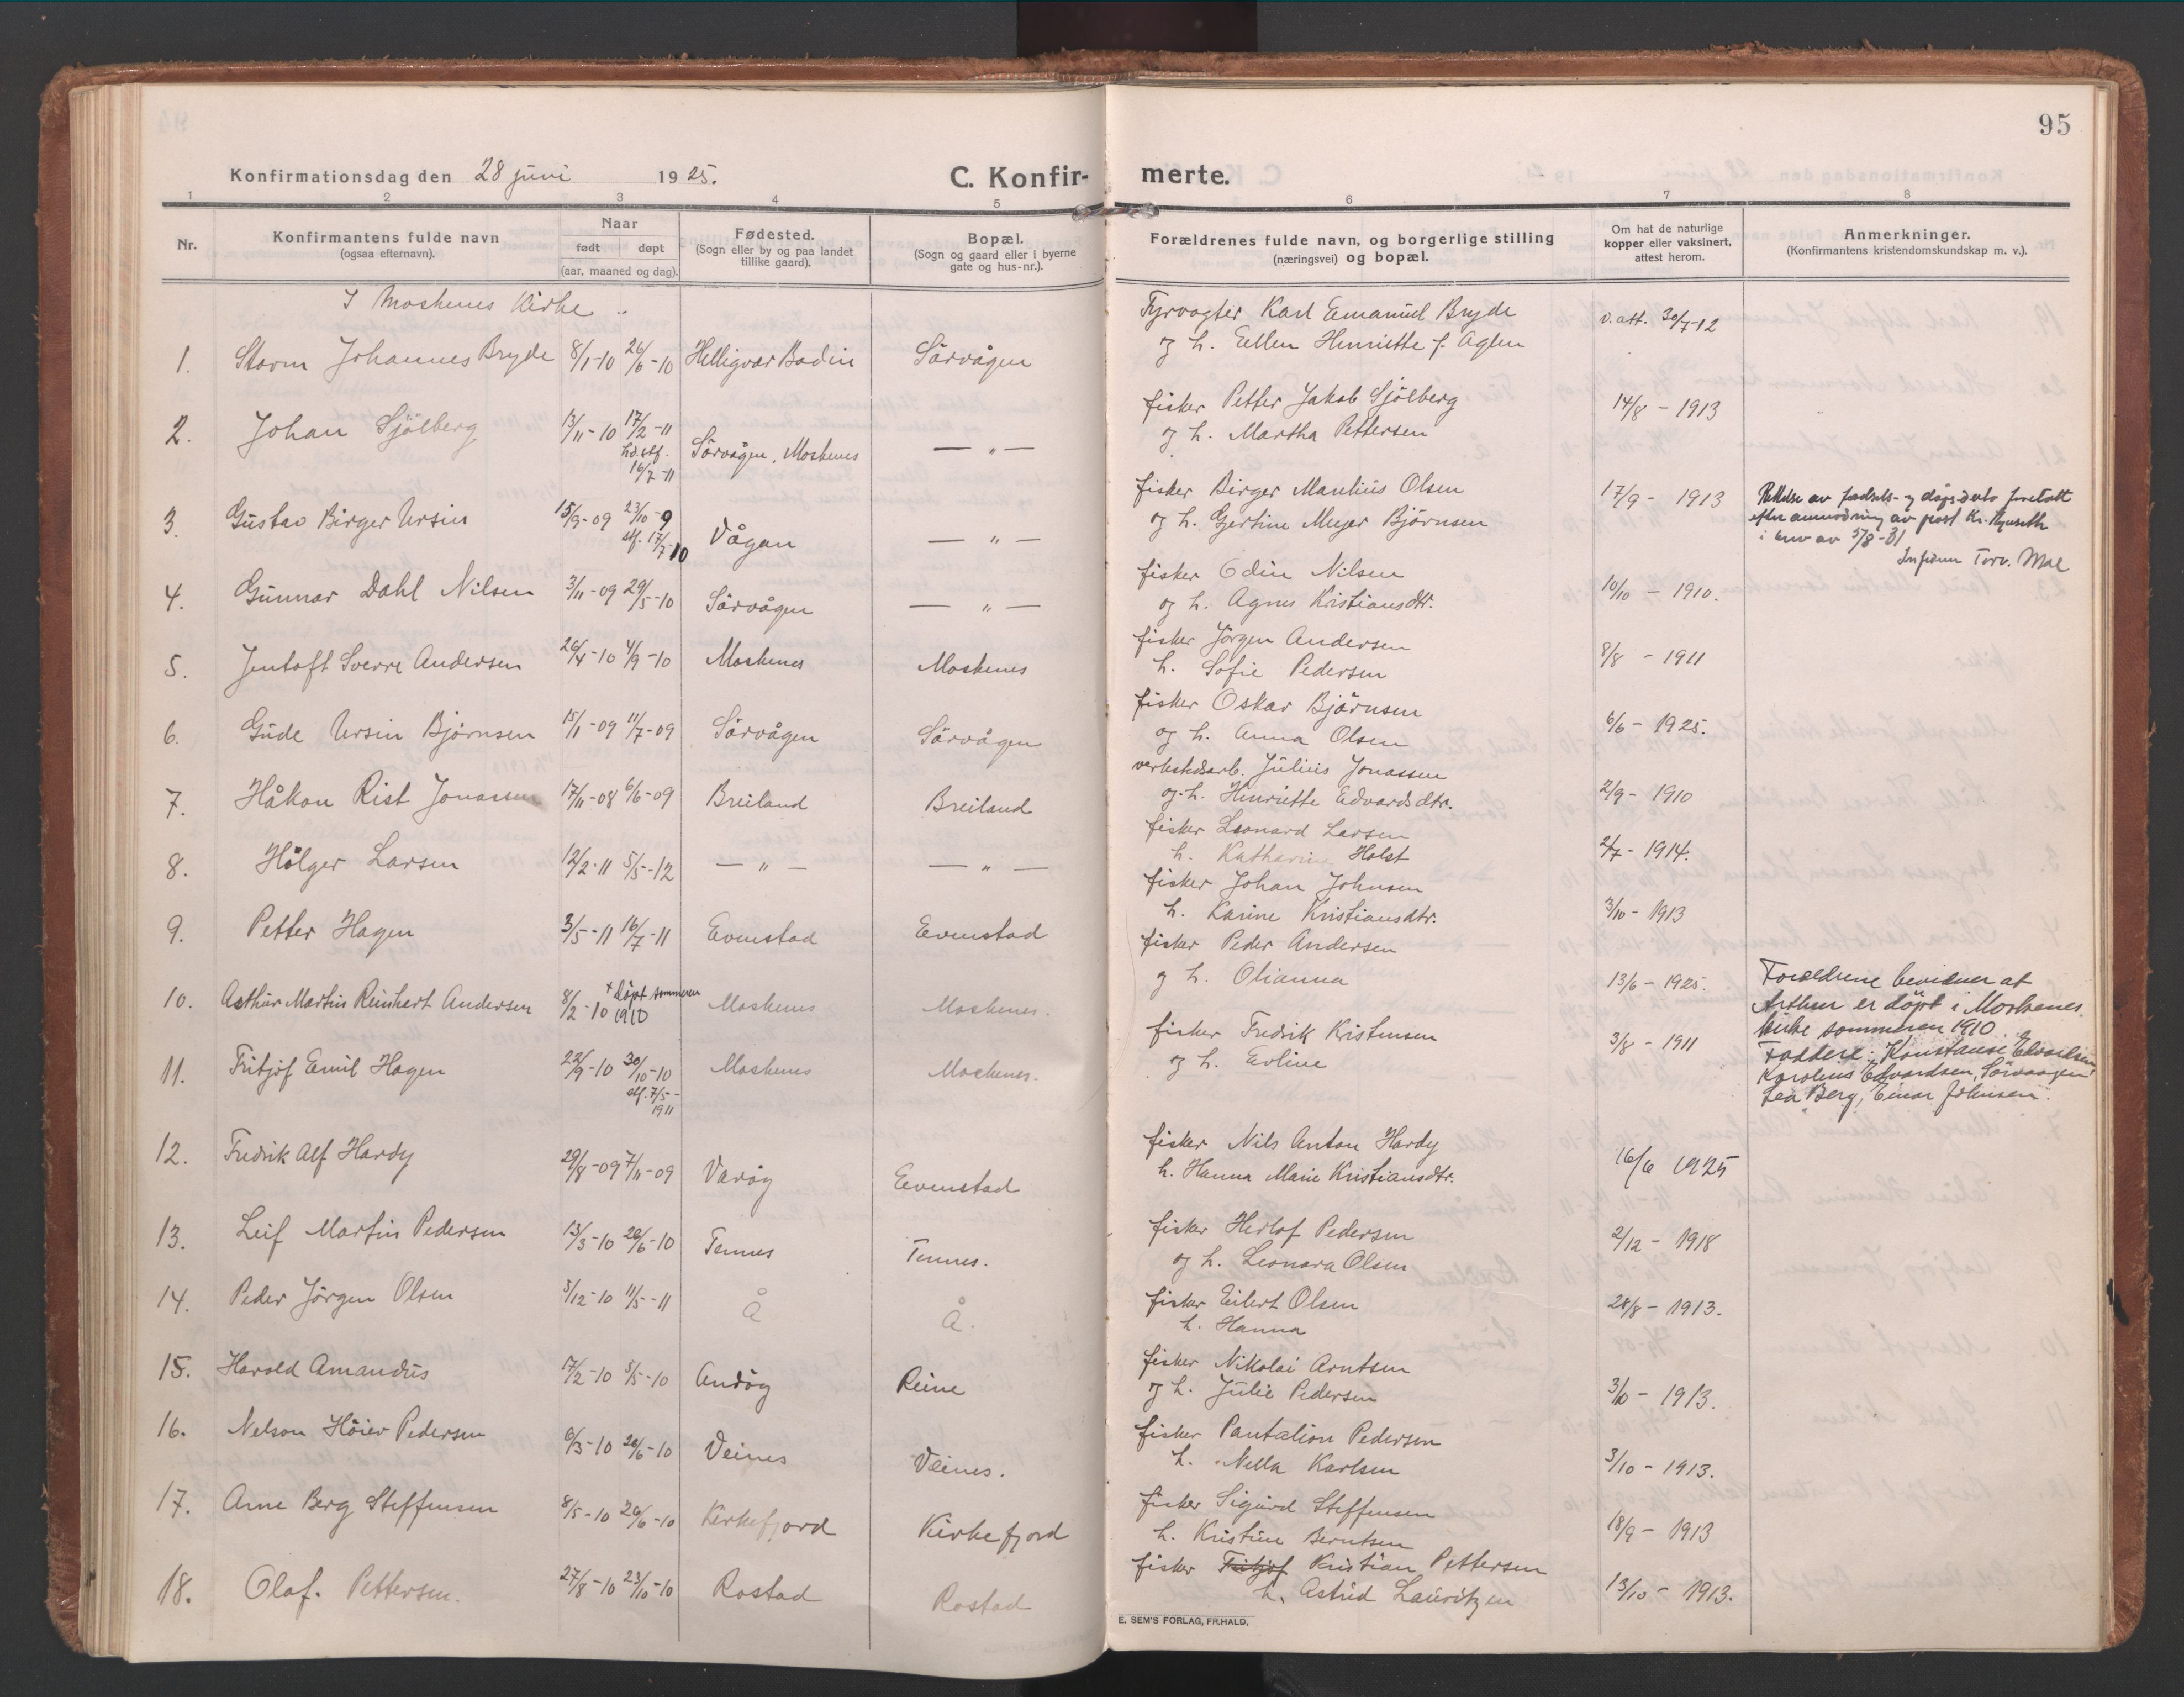 95
Konfirmationsdag den 28 juni 1925.
C. Konfir- merte.
1 2 3 4 5 6 7 8
Nr.
Konfirmantens fulde navn
(ogsaa efternavn).
Naar
født døpt
(aar, maaned og dag).
Fødested.
(Sogn eller by og paa landet
tillike gaard).
Bopæl.
(Sogn og gaard eller i byerne
gate og hus-nr.).
Forældrenes fulde navn, og borgerlige stilling
(næringsvei) og bopæl.
Om hat de naturlige
kopper eller vaksinert,
attest herom.
Anmerkninger.
(Konfirmantens kristendomskundskap m. v.).
I Moskenes Kirke ..
1. Storm Johannes Bryde 8/1-10 26/6-10 Helligvær Bodin Sörvågen
Fyrvogter Karl Emanuel Bryde
og h. Ellen Henriette f. Aglen
v. att. 30/7-12
2. Johan Sjölberg 13/11-10 17/2-11 Sörvågen, Moskenes — " —
stf.
16/7-11
fisker Petter Jakob Sjölberg
og h. Martha Pettersen
14/8 - 1913
3. Gustav Birger Ursin 15/9-09 23/10-9 Vågan — " —
stf. 17/7-10
fisker Birger Marelius Olsen
og h. Gjertine Meyer Björnsen
17/9 - 1913
Rettelse av fødsels- og dåpsdato foretatt
efter anmodning av
i brev av 5/8-31
4. Gunnar Dahl Nilsen 3/11-09 29/5-10 Sörvågen — " —
fisker Odin Nilsen
og h. Agnes Kristiansdtr.
10/10 - 1910.
5. Jentoft Sverre Andersen 26/4-10 4/9-10 Moskenes Moskenes
fisker Jörgen Andersen
h. Sofie Pedersen
8/8 - 1911
6. Gude Ursin Björnsen 15/1-09 11/7-09 Sörvågen Sörvågen
fisker Oskar Björnsen
og h. Anna Olsen
6/6 - 1925.
7. Håkon Rist Jonassen 17/11-08 6/6-09 Breiland Breiland
verkstedsarb. Julius Jonassen
og h. Henriette Edvardsdtr.
2/9 - 1910
8. Holger Larsen 12/2-11 5/5-12 — " — — " —
fisker Leonard Larsen
h. Katharina Holst
2/7 - 1914.
9. Petter Hagen 3/5-11 16/7-11 Evenstad Evenstad
fisker Johan Johnsen
h. Karine Kristiansdtr.
3/10 - 1913
10. Arthur Martin Reinhert Andersen 8/2-10 + Döpt sommeren 1910 Moskenes Moskenes.
fisker Peder Andersen
og h. Olianna
13/6 - 1925.
Foreldrene bevidner at
Arthur er döpt i Moskenes
kirke sommeren 1910.
Faddere: Konstanse Edvardsen,
Karolius Edvardsen, Sörvaagen
Lea Berg, Einar Johnsen.
11. Fritjof Emil Hagen 22/9-10 30/10-10 Moskenes Moskenes.
stf. 7/5-
1911
fisker Fredrik Kristensen
og h. Evline
3/8 - 1911
12. Fredrik Alf Hardy 29/8-09 7/11-09 Væröy Evenstad
fisker Nils Anton Hardy
h. Hanna Marie Kristiansdtr.
16/6 1925
13. Leif Martin Pedersen 13/3-10 26/6-10 Tennes Tennes.
fisker Herlof Pedersen
og h. Leonora Olsen
2/12 - 1918
14. Peder Jörgen Olsen 3/12-10 11/5-11 Å Å.
fisker Eilert Olsen
h. Hanna
28/8 - 1913.
15. Harold Amandus 17/2-10 5/5-10 Andöy Reine
fisker Nikolai Arntsen
og h. Julie Pedersen
3/10 - 1913.
16. Nelson Höier Pedersen 6/3-10 26/6-10 Veines Veines.
fisker Pantalion Pedersen
h. Nella Karlsen
3/10 - 1913.
17. Arne Berg Steffensen 8/5-10 26/6-10 Kirkefjord Kirkefjord
fisker Sigurd Steffensen
h. Kristine Berntsen
18/9 - 1913
18. Olaf. Pettersen. 27/8-10 23/10-10 Rostad Rostad
fisker Fritjof Kristian Pettersen
h. Astrid Lauritzen
13/10 - 1913.
E. SEM'S FORLAG, FR.HALD.